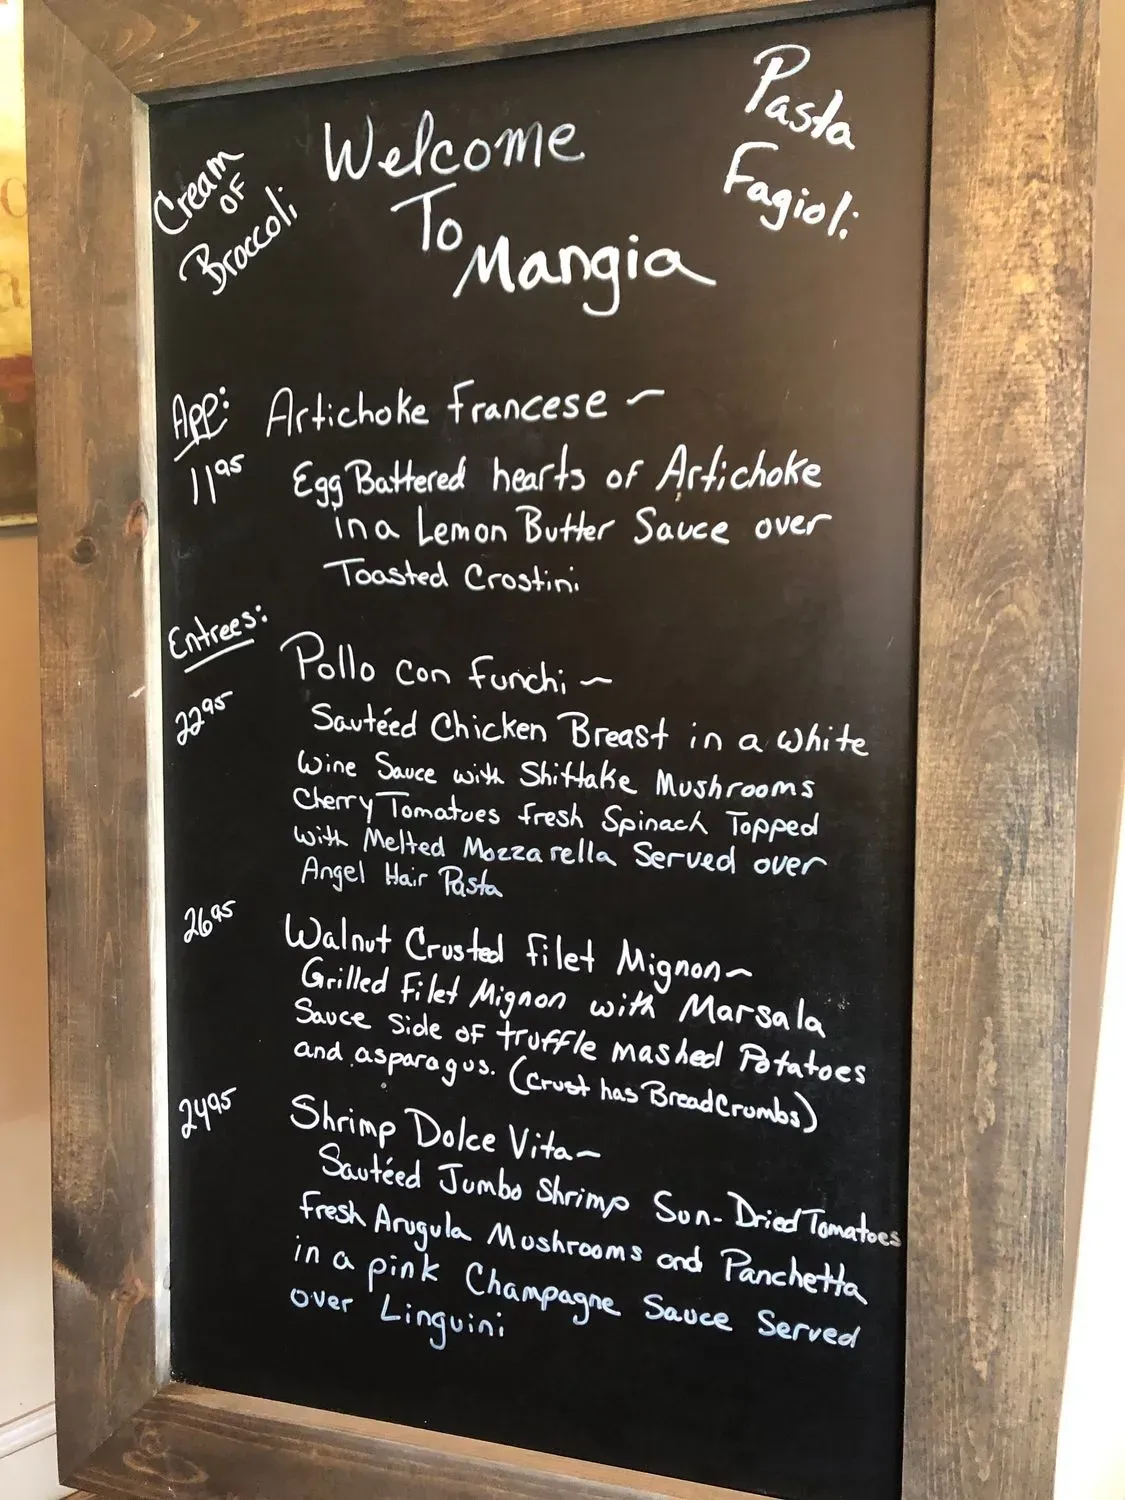 Cream
OF
Broccoli
Welcome
To
Mangia
Pasta
Fagioli
App:
Artichoke Francese ~
11 95
Egg Battered hearts of Artichoke
in a Lemon Butter Sauce over
Toasted Crostini
Entrees:
Pollo con Funchi ~
22 95
Sautéed Chicken Breast in a white
Wine Sauce with Shittake Mushrooms
Cherry Tomatoes Fresh Spinach Topped
with Melted Mozzarella Served over
Angel Hair Pasta
26 95
Walnut Crusted Filet Mignon ~
Grilled Filet Mignon with Marsala
Sauce Side of truffle mashed Potatoes
and asparagus. (Crust has BreadCrumbs)
24 95
Shrimp Dolce Vita ~
Sautéed Jumbo Shrimp Sun-Dried Tomatoes
Fresh Arugula Mushrooms and Panchetta
in a pink Champagne Sauce Served
over Linguini